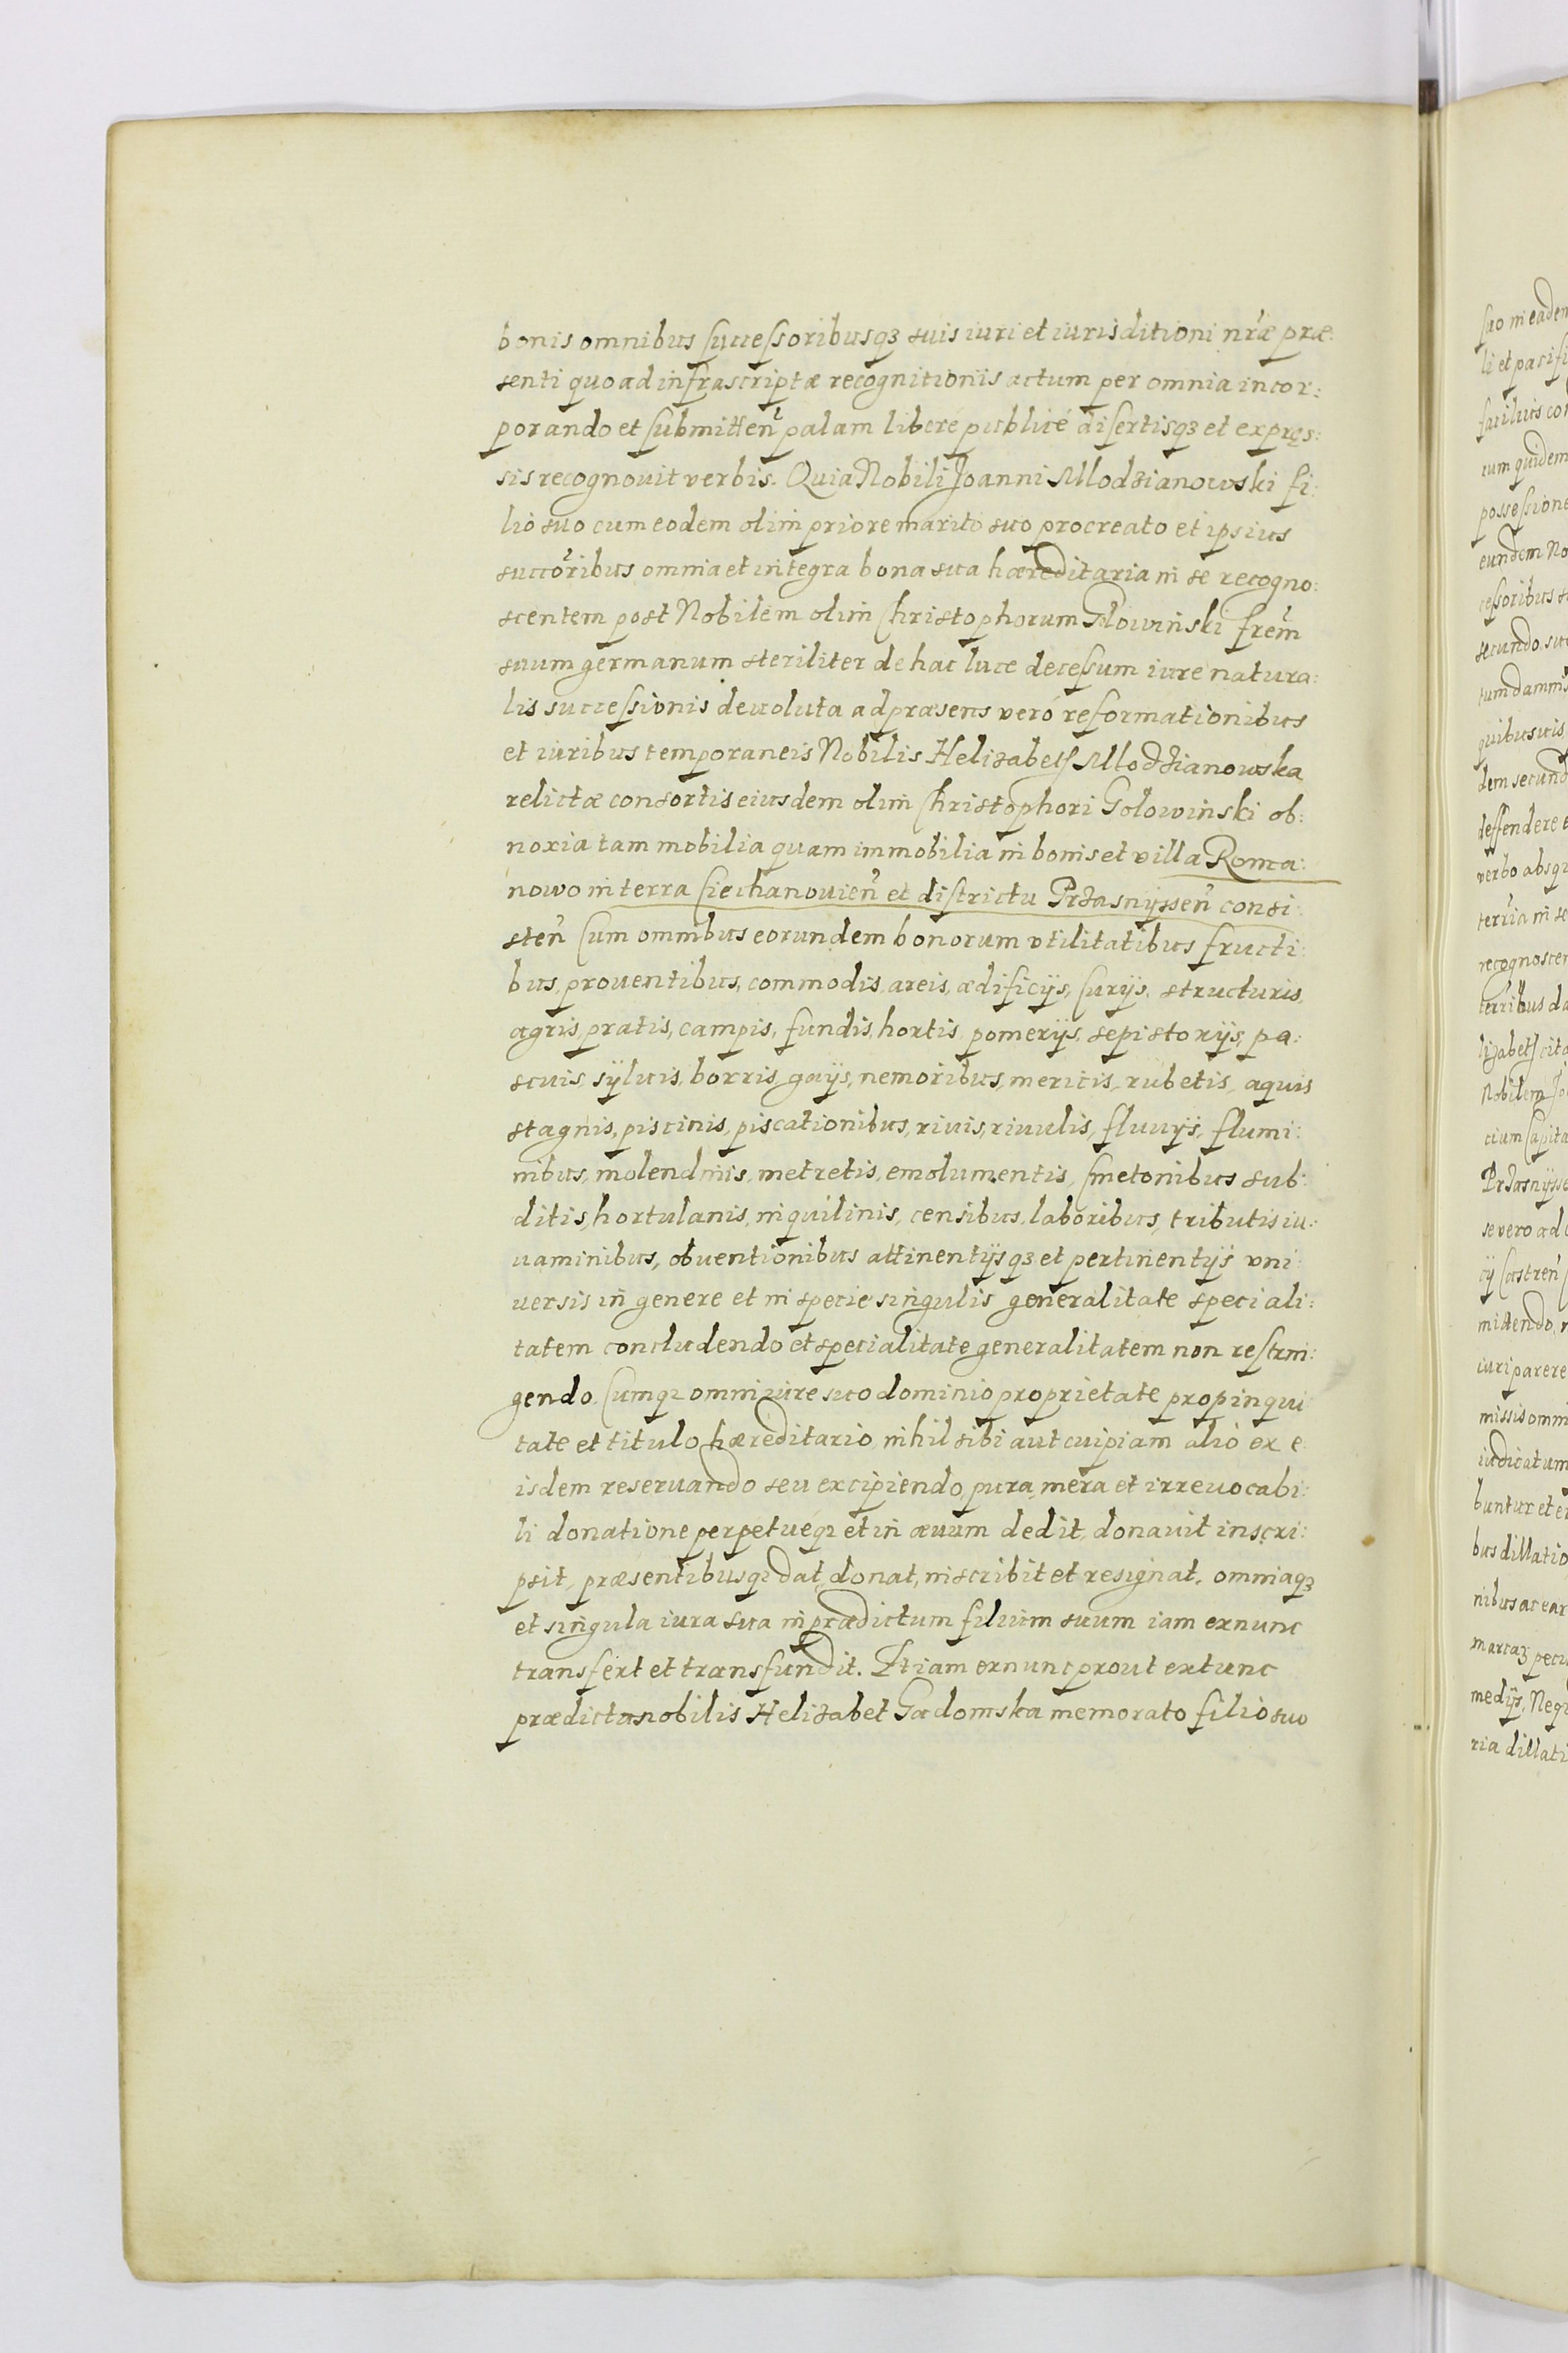 bonis omnibus successoribusq3 suis iuri et iurisditioni nr̃æ præ:
senti quo ad infrascriptæ recognitionis actum per omnia incor:
porando et submitten̄ palam liberé publicé disertisq3 et expręs:
sis recognouit verbis. Quia Nobili Joanni Mlodzianowski fi:
lio suo cum eodem olim priore marito suo procreato et ipsius
succoribus omnia et integra bona sua hæreditaria in se recogno:
scentem post Nobilem olim Christophorum Golowinski frem
suum germanum steriliter de hac luce decessum iure natura:
lis successionis deuoluta ad præsens veró reformationibus
et iuribus temporaneis Nobilis Helizabeth Mlodzianowska
relictæ consortis eiusdem olim Christophori Golowinski ob:
noxia tam mobilia quam immobilia in bonis et villa Roma:
nowo in terra Ciechanouien̄ et districtu Przasnyssen̄ consi:
sten̄ Cum omnibus eorundem bonorum vtilitatibus fructi:
bus, prouentibus, commodis, areis, ædificijs, Curijs, structuris,
agris, pratis, campis, fundis, hortis, pomerijs, sepistorijs, pa:
scuis, syluis, borris, gaijs, nemoribus, mericis, rubetis, aquis
stagnis, piscinis, piscationibus, riuis, riuulis, fluuijs, flumi:
nibus, molendinis, metretis, emolumentis, Cmetonibus sub:
ditis, hortulanis, inquilinis, censibus, laboribus, tributis iu:
uaminibus, obuentionibus attinentijsq3 et pertinentijs vni:
uersis in genere et in specie singulis generalitate speciali:
tatem concludendo et specialitate generalitatem non restrin:
gendo. Cumq3 omni iure suo dominio proprietate propinqui
tate et titulo hæreditario, nihil sibi aut cuipiam alio ex e:
isdem reseruando seu excipiendo, pura, mera et irreuocabi:
li donatione perpetuéq3 et in æuum dedit, donauit inscri:
psit, præsentibusq3 dat, donat, inscribit et resignat, omniaq3
et singula iura sua in prædictum filium suum iam exnunc
transfert et transfundit. Et iam exnunc prout extunc
prædicta nobilis Helizabet Gadomska memorato filio suo